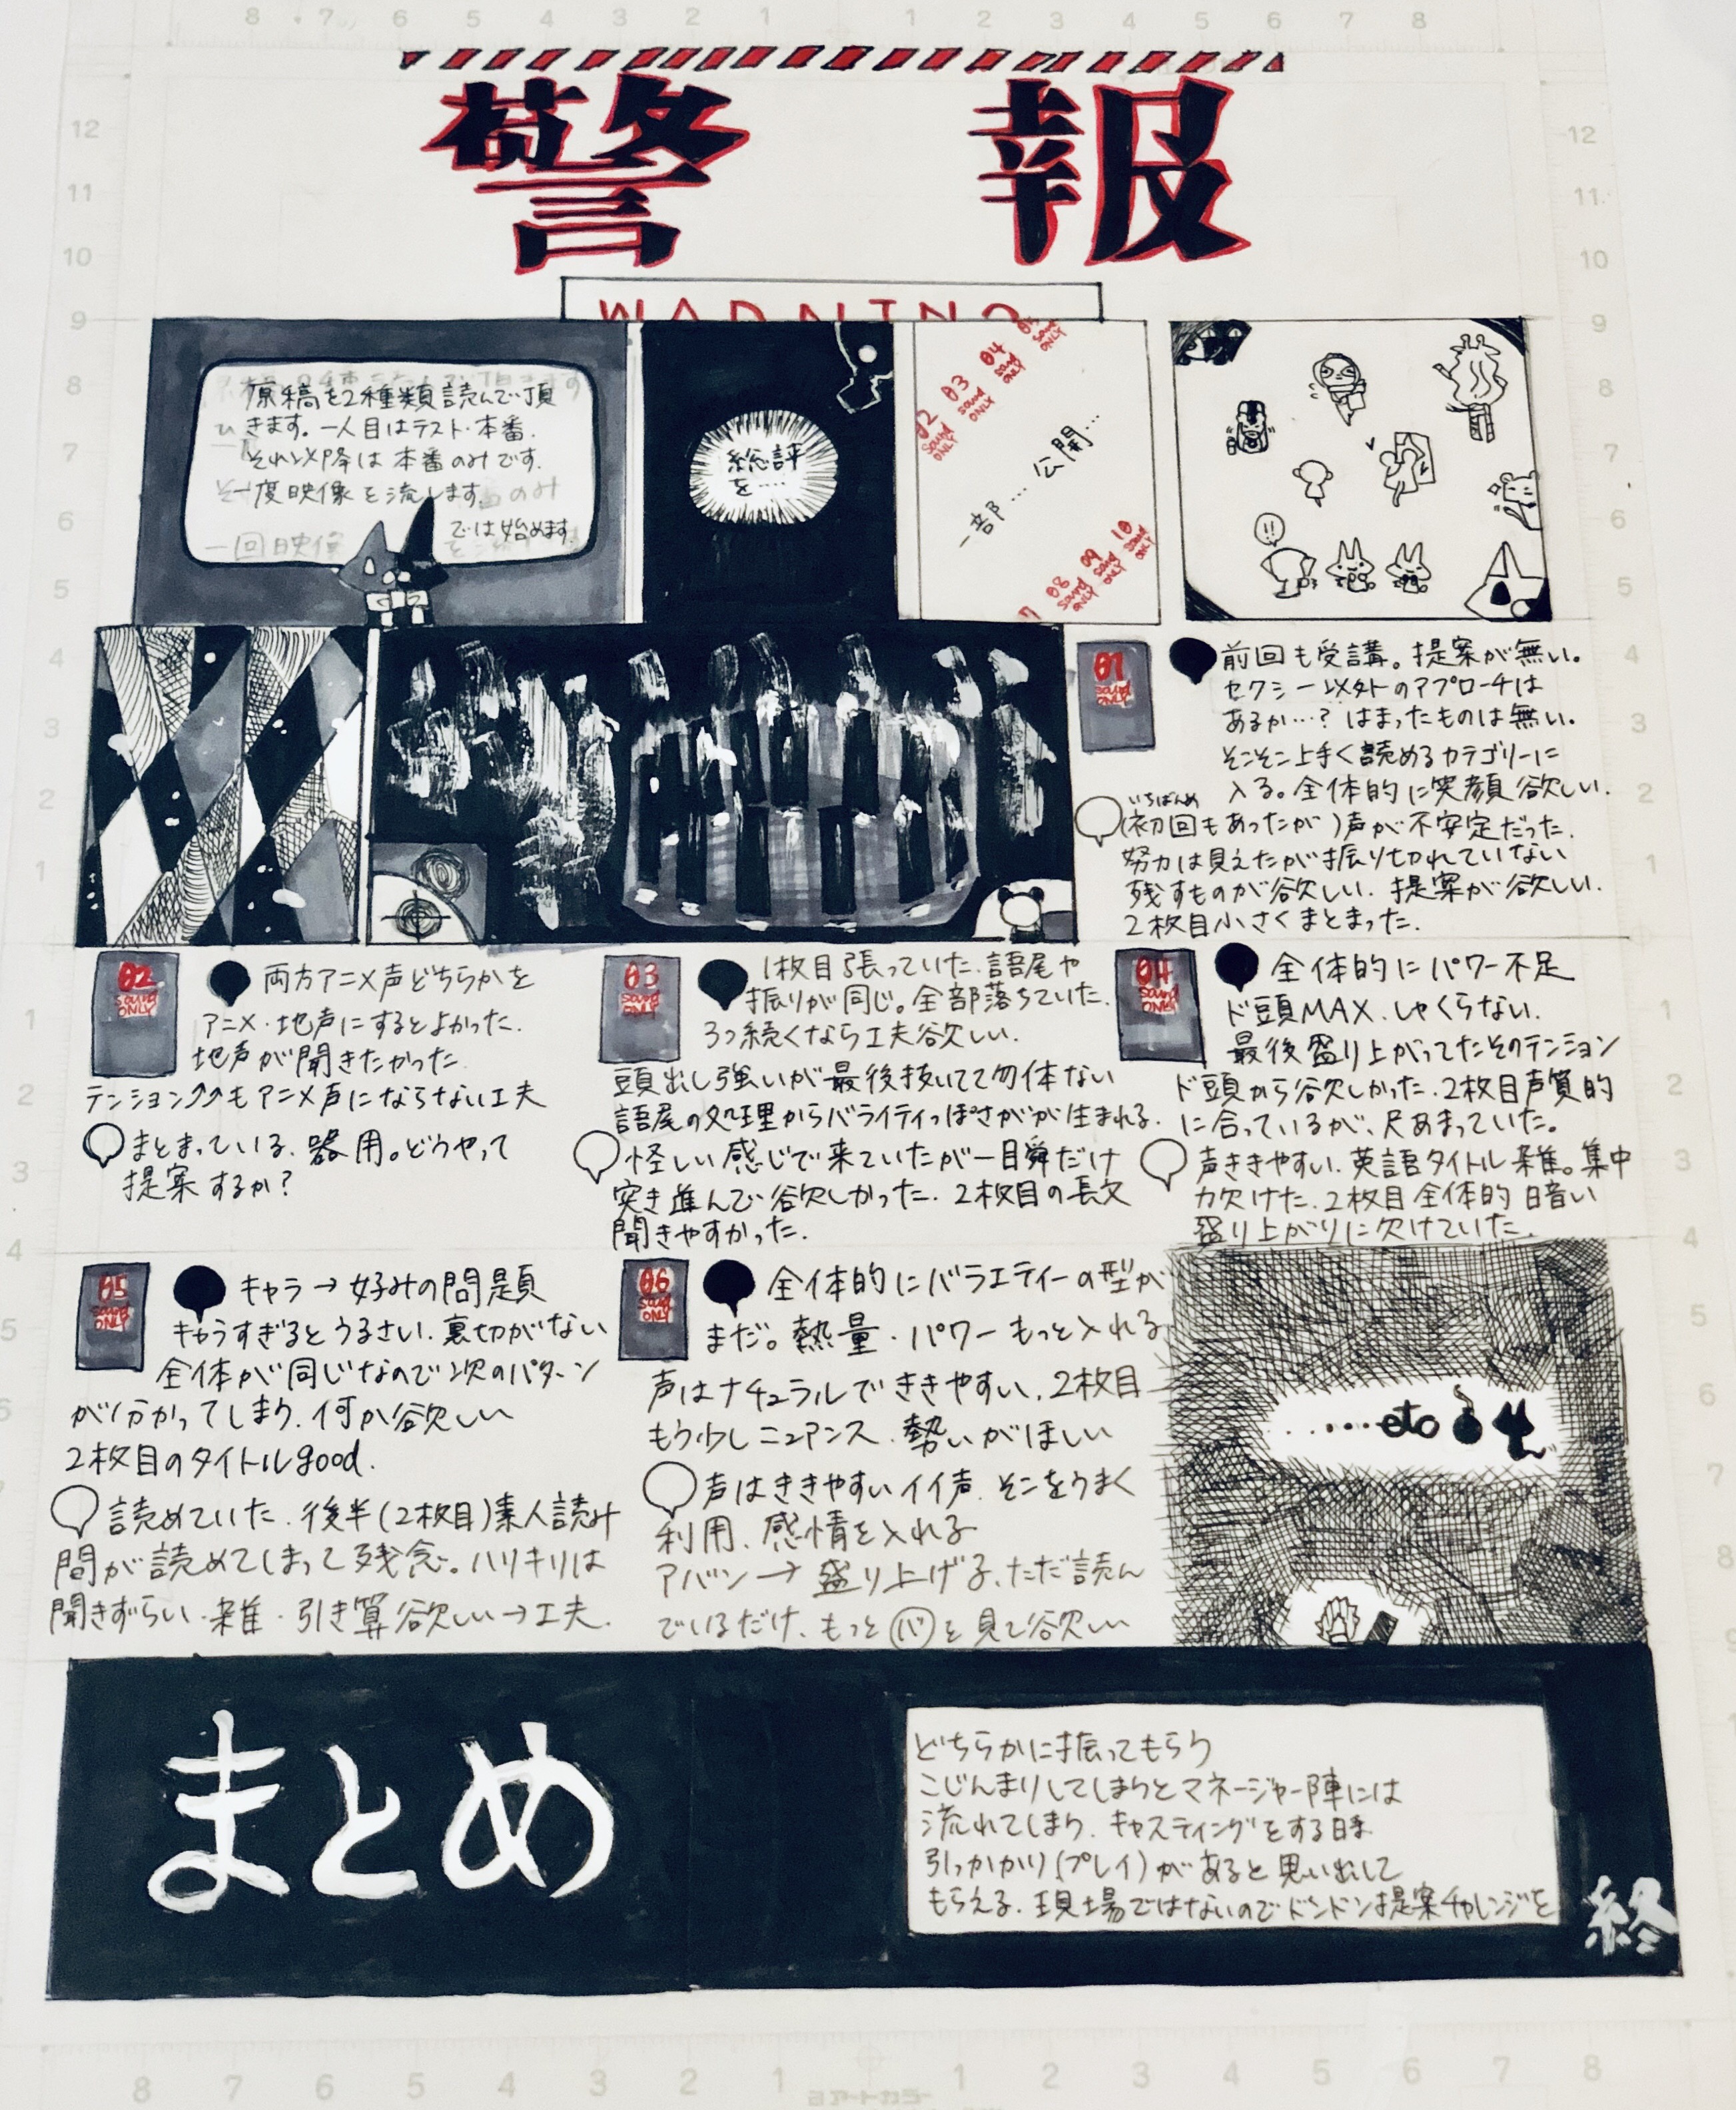 警報
WARNING
原稿を2種類読んで頂
きます。一人目はテスト・本番.
それ以降は本番のみです.
一度映像を流します.
では始めます.
総評
を....
02 sound ONLY
03 sound ONLY
04 sound ONLY
05 sound ONLY
一部...公開...
08 sound ONLY
09 sound ONLY
10 sound ONLY
01
sound
ONLY
前回も受講。提案が無い。
セクシー以外のアプローチは
あるか…? はまったものは無い。
そこそこ上手く読めるカテゴリーに
入る。全体的に笑顔欲しい.
いちばんめ
(初回もあったが)声が不安定だった.
努力は見えたが振り切れていない
残すものが欲しい. 提案が欲しい.
2枚目小さくまとまった.
02
sound
ONLY
両方アニメ声どちらかを
アニメ・地声にするとよかった.
地声が聞きたかった
テンション↗↗もアニメ声にならない工夫
まとまっている. 器用。どうやって
提案するか?
03
sound
ONLY
1枚目張っていた. 語尾や
振りが同じ。全部落ちていた.
3つ続くなら工夫欲しい.
頭出し強いが最後抜いてて勿体ない
語尾の処理からバライティっぽさがが生まれる.
怪しい感じで来ていたが一瞬だけ
突き進んで欲しかった. 2枚目の長文
聞きやすかった.
04
sound
ONLY
全体的にパワー不足
ド頭MAX. しゃくらない.
最後盛り上がってたそのテンション
ド頭から欲しかった. 2枚目声質的
に合っているが、尺あまっていた。
声ききやすい. 英語タイトル雑。集中
力欠けた. 2枚目全体的暗い
盛り上がりに欠けていた.
05
sound
ONLY
キャラ→好みの問題
キャラすぎるとうるさい. 裏切がない
全体が同じなので次のパターン
が分かってしまう. 何か欲しい
2枚目のタイトルgood.
読めていた. 後半(2枚目)素人読み
間が読めてしまって残念。ハリキリは
聞きずらい・雑・引き算欲しい→工夫.
06
sound
ONLY
全体的にバラエティーの型が
まだ。熱量・パワーもっと入れる
声はナチュラルでききやすい. 2枚目
もう少しニュアンス. 勢いがほしい
声はききやすいイイ声. そこをうまく
利用. 感情を入れる
アバン→盛り上げる. ただ読ん
でいるだけ. もっと(バ)を見て欲しい
.....etc
まとめ
どちらかに振ってもらう
こじんまりしてしまうとマネージャー陣には
流れてしまう. キャスティングをする時
引っかかり(プレイ)があると思い出して
もらえる. 現場ではないのでドンドン提案チャレンジを
終